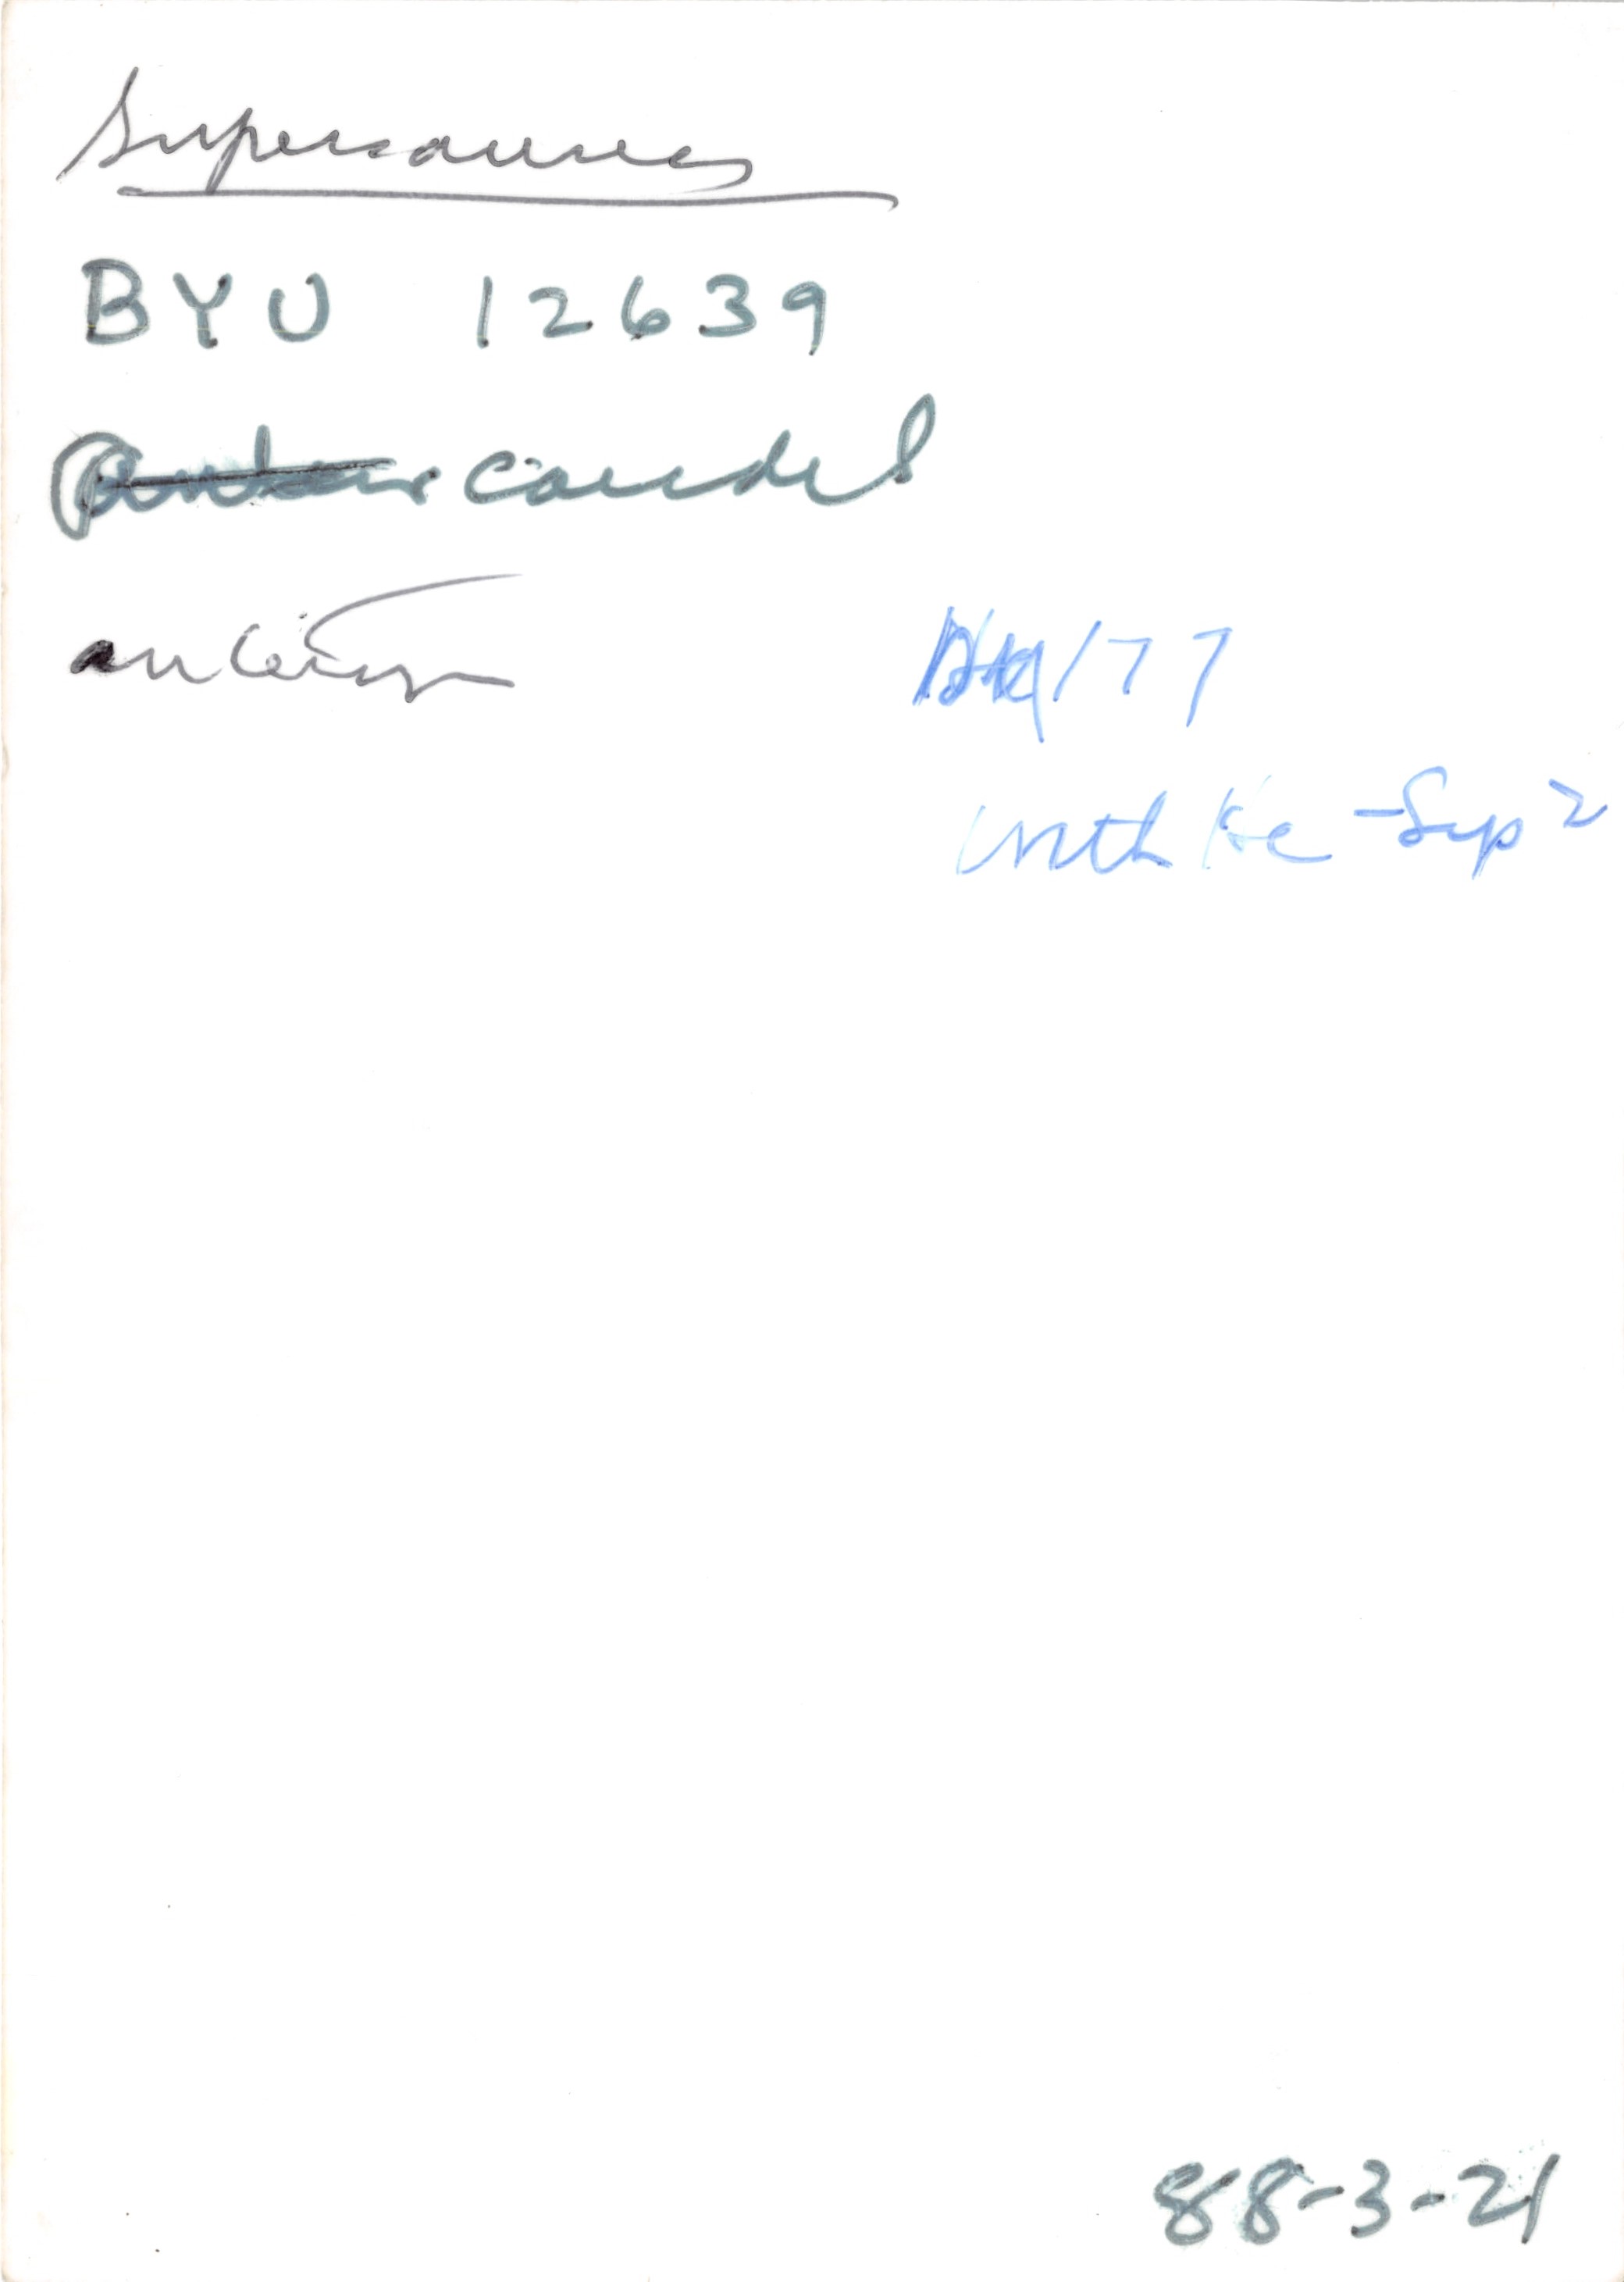 Supersaurus
BYU 12639
caudal
anterior
/77
with Ke - Sup 2
88-3-21